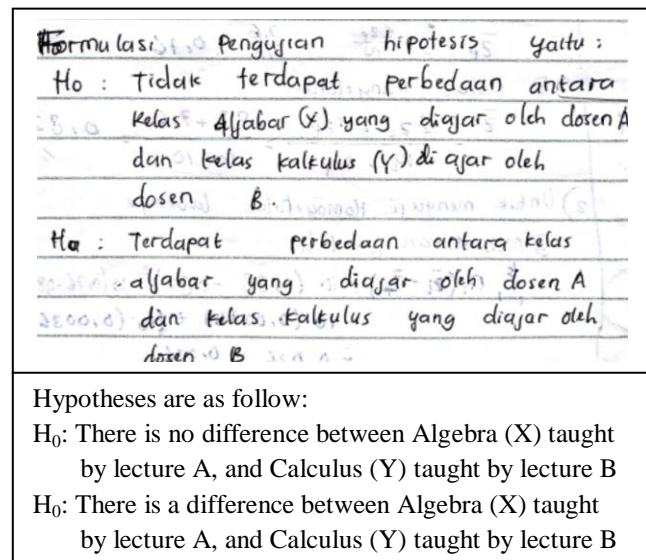 Formulasi pengujian hipotesis yaitu :
Ho : Tidak terdapat perbedaan antara
kelas Aljabar (X) yang diajar oleh dosen A
dan kelas kalkulus (Y) di ajar oleh
dosen B.
Ha : Terdapat perbedaan antara kelas
aljabar yang diajar oleh dosen A
dan kelas kalkulus yang diajar oleh
dosen B
Hypotheses are as follow:
H₀: There is no difference between Algebra (X) taught
by lecture A, and Calculus (Y) taught by lecture B
H₀: There is a difference between Algebra (X) taught
by lecture A, and Calculus (Y) taught by lecture B